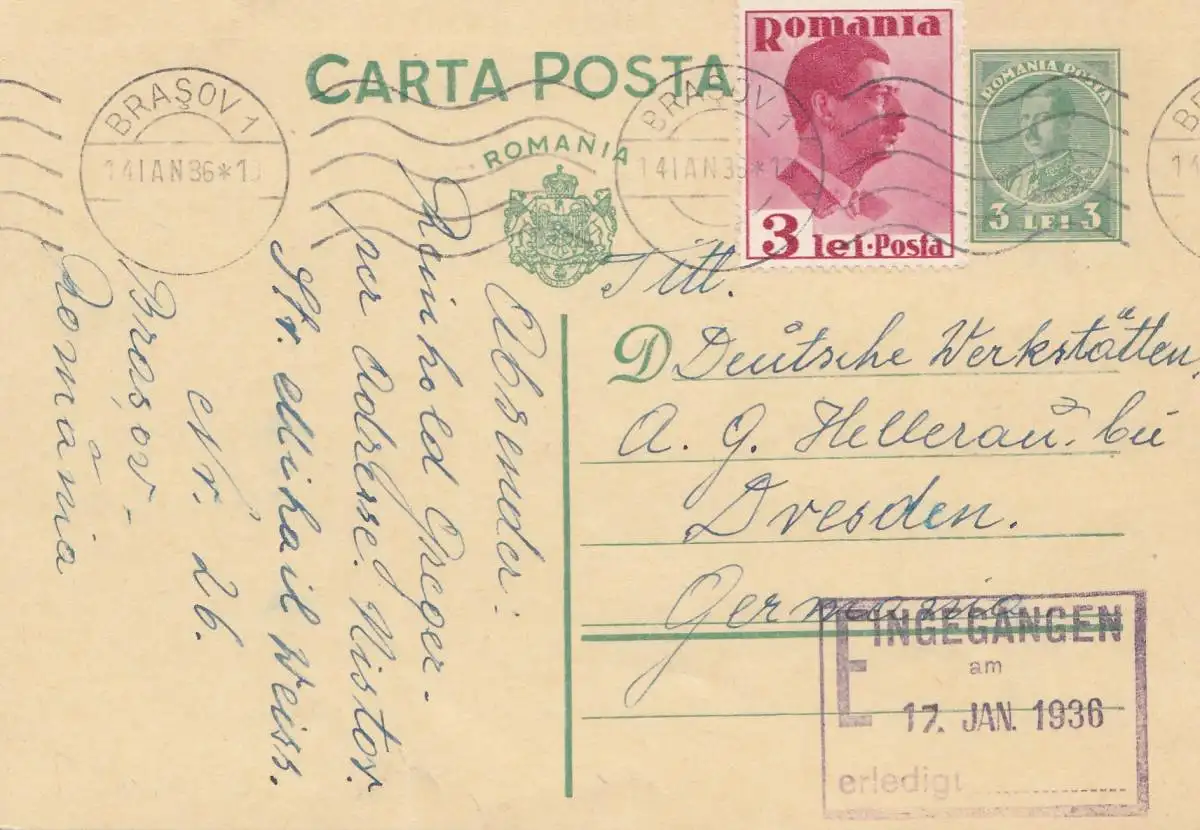 CARTA POSTA
ROMANIA
Romania
3 lei·Posta
ROMANIA POSTA
3 LEI 3
BRAȘOV 1
14 IAN 36*1
BRAȘOV 1
14 IAN 36*1
B
14
Titl.
D Deutsche Werkstätten,
A. G. Hellerau bei
Dresden.
Germania
Absender:
Reinhold
per Adresse: Nistor.
Str. Mihail Weiss.
Nr. 26.
Brașov -
România
EINGEGANGEN
am
17. JAN. 1936
erledigt